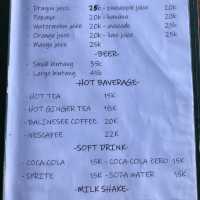 Dragon juice 25k - pineapple juice 20k
Papaya 20k - banana 20k
Watermelon juice 20k - avocado 25k
Orange juice 20k - lime juice 20k
Mango juice 25k
-BEER-
Small bintang 35k
Large bintang 45k
-HOT BAVERAGE-
-HOT TEA 15K
-HOT GINGER TEA 18K
-BALINESEE COFFEE 20K
-NESCAFEE 22K
-SOFT DRINK-
-COCA-COLA 15K -COCA-COLA ZERO 15K
-SPRITE 15K -SODA WATER 15K
-MILK SHAKE-